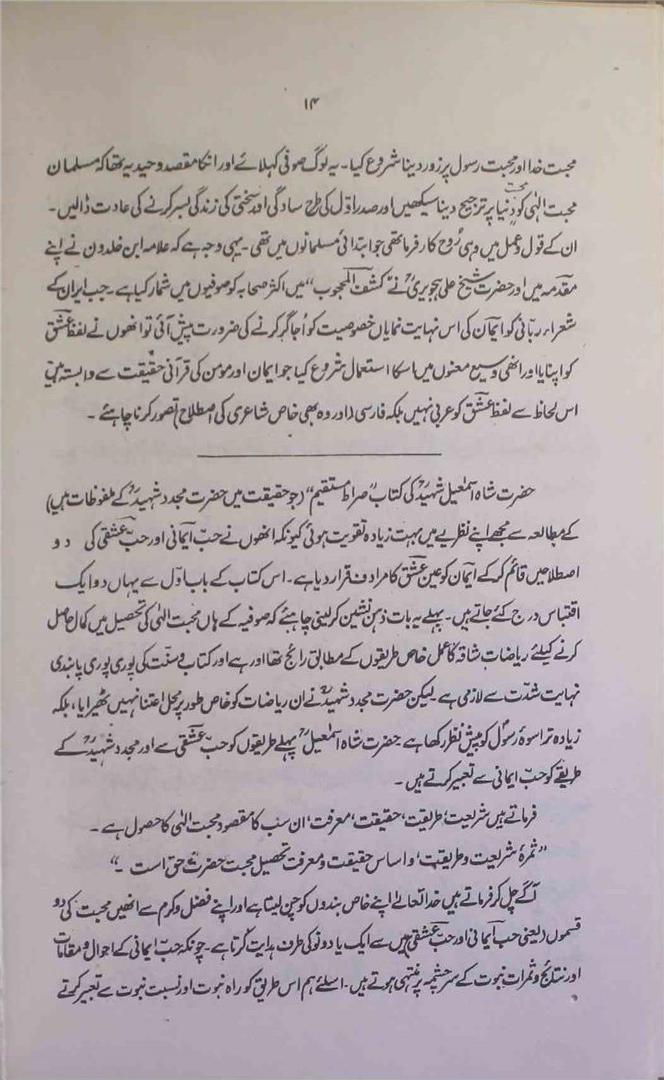 ۱۴
محبت خدا اور محبت رسول پر زور دینا شروع کیا۔ یہ لوگ صوفی کہلائے اور انکا مقصد وحید یہ تھا کہ مسلمان
محبت الٰہی کو محبت دنیا پر ترجیح دینا سیکھیں اور صدر اوّل کی طرح سادگی اور سختی کی زندگی بسر کرنے کی عادت ڈالیں۔
ان کے قول و عمل میں وہی رُوح کارفرما تھی جو ابتدائی مسلمانوں میں تھی۔ یہی وجہ ہے کہ علامہ ابن خلدون نے اپنے
مقدمہ میں اور حضرت شیخ علی ہجویریؒ نے "کشف المحجوب" میں اکثر صحابہ کو صوفیوں میں شمار کیا ہے۔ جب ایران کے
شعراء ربانی کو ایمان کی اس نہایت نمایاں خصوصیت کو اُجاگر کرنے کی ضرورت پیش آئی تو انھوں نے لفظ عشق
کو اپنایا اور انھی وسیع معنوں میں اسکا استعمال شروع کیا جو ایمان اور مومن کی قرآنی حقیقت سے وابستہ ہیں
اس لحاظ سے لفظ عشق کو عربی نہیں بلکہ فارسی (اور وہ بھی خاص شاعری کی اصطلاح) تصور کرنا چاہئے۔
حضرت شاہ اسمٰعیل شہیدؒ کی کتاب "صراط مستقیم" (جو حقیقت میں حضرت مجدد شہیدؒ کے ملفوظات ہیں)
کے مطالعہ سے مجھے اپنے نظریے میں بہت زیادہ تقویت ہوئی کیونکہ انھوں نے حبّ ایمانی اور حبّ عشقی کی دو
اصطلاحیں قائم کرکے ایمان کو عین عشق کا مرادف قرار دیا ہے۔ اس کتاب کے باب اوّل سے یہاں دو ایک
اقتباس درج کئے جاتے ہیں۔ پہلے یہ بات ذہن نشین کرلینی چاہئے کہ صوفیہ کے ہاں محبت الٰہی کی تحصیل میں کمال حاصل
کرنے کیلئے ریاضات شاقہ کا عمل خاص طریقوں کے مطابق رائج تھا اور ہے اور کتاب و سنّت کی پوری پوری پابندی
نہایت شدّت سے لازمی ہے۔ لیکن حضرت مجدد شہیدؒ نے ان ریاضات کو خاص طور پر محل اعتنا نہیں ٹھیرایا، بلکہ
زیادہ تر اسوۂ رسول کو پیش نظر رکھا ہے۔ حضرت شاہ اسمٰعیلؒ پہلے طریقوں کو حبّ عشقی سے اور مجدد شہیدؒ کے
طریقے کو حبّ ایمانی سے تعبیر کرتے ہیں۔
فرماتے ہیں شریعت، طریقت، حقیقت، معرفت، ان سب کا مقصود محبت الٰہی کا حصول ہے۔
"ثمرۂ شریعت و طریقت، و اساس حقیقت و معرفت تحصیل محبت حضرت حق است۔"
آگے چل کر فرماتے ہیں خدا تعالےٰ اپنے خاص بندوں کو چن لیتا ہے اور اپنے فضل و کرم سے انھیں محبت کی دو
قسموں (یعنی حب ایمانی اور حب عشقی) میں سے ایک یا دونو کی طرف ہدایت کرتا ہے۔ چونکہ حبّ ایمانی کے احوال و مقامات
اور نتائج و ثمرات نبوت کے سرچشمہ پر منتہی ہوتے ہیں۔ اسلئے ہم اس طریق کو راہ نبوت اور نسبت نبوت سے تعبیر کرتے